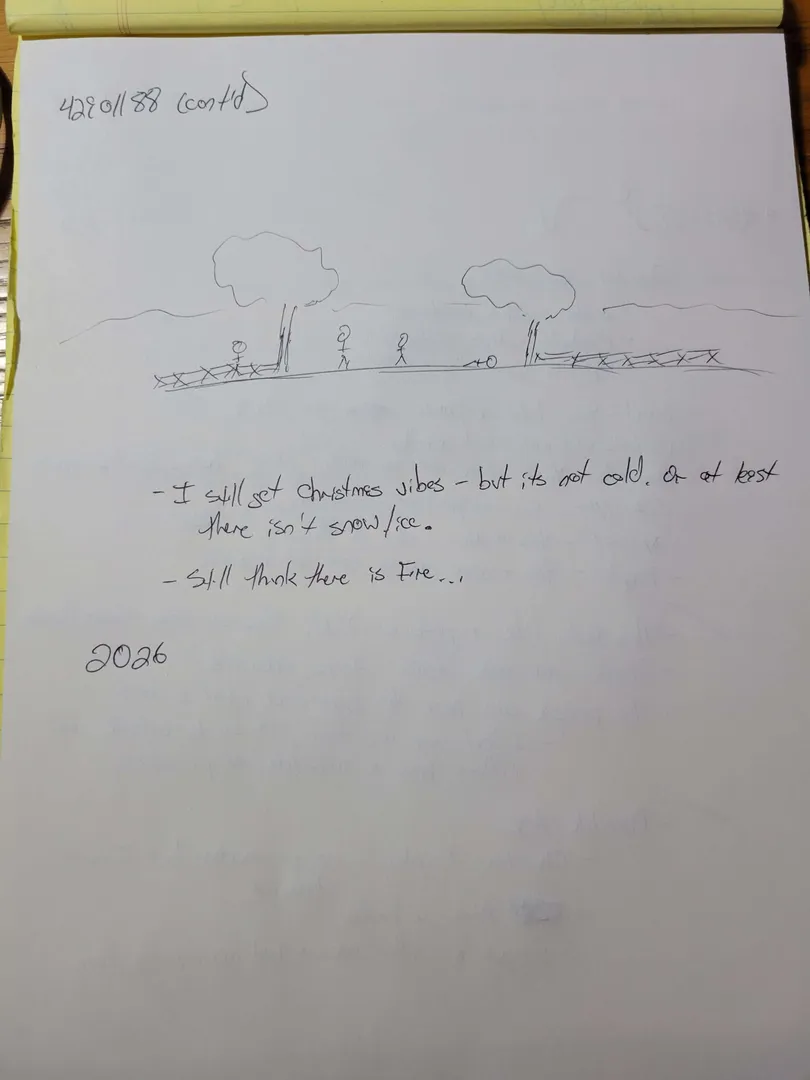 42901188 (cont'd)
- I still get Christmas vibes - but its not cold. Or at least
there isn't snow/ice.
- Still think there is Fire...
2026